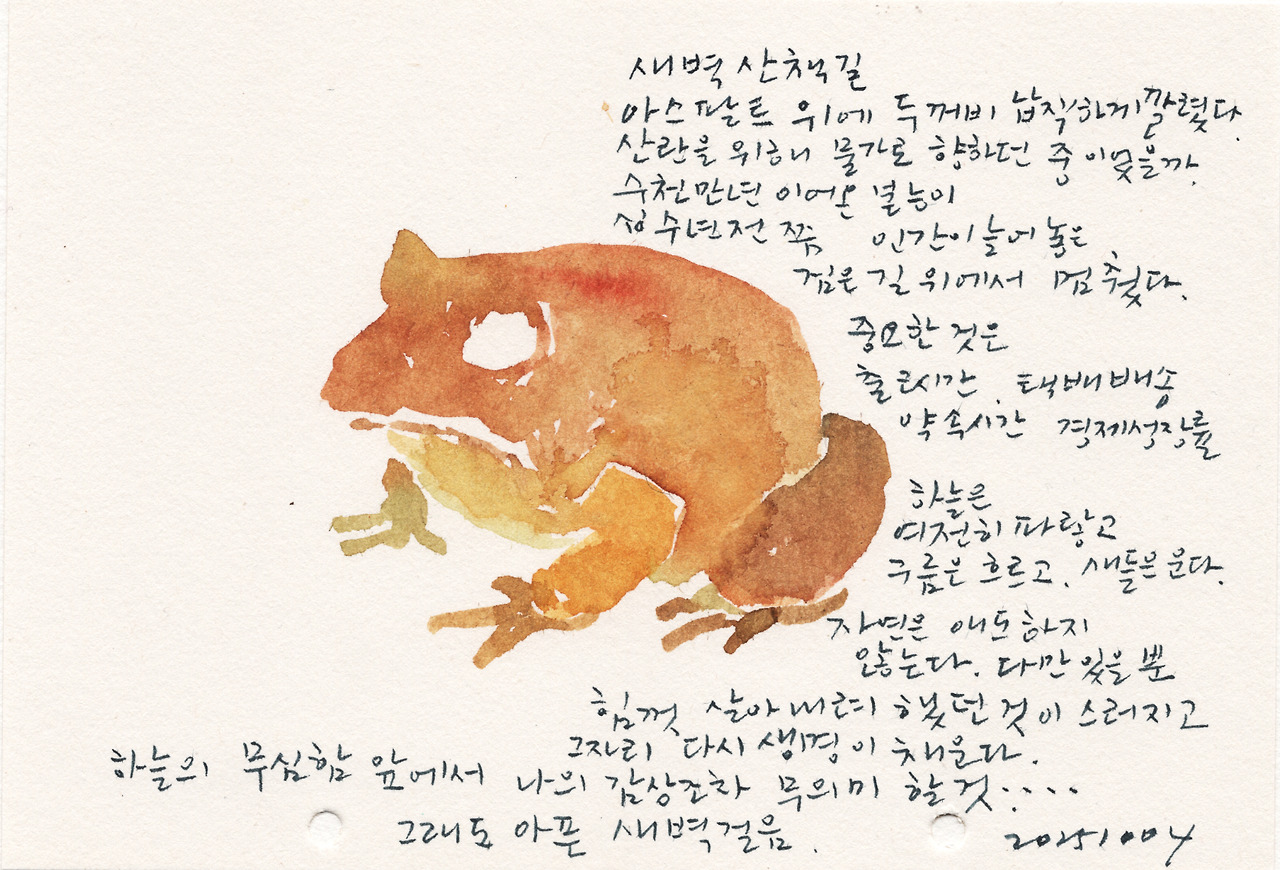 새벽 산책길
아스팔트 위에 두꺼비 납작하게 깔렸다.
산란을 위해 물가로 향하던 중이었을까.
수천만년 이어온 본능이
십수년전 쯤 인간이 늘어놓은
검은 길 위에서 멈췄다.
중요한 것은
출근시간, 택배배송
약속시간 경제성장률
하늘은
여전히 파랗고
구름은 흐르고, 새들은 운다.
자연은 애도하지
않는다. 다만 있을 뿐
힘껏 살아내려 했던 것이 스러지고
그자리 다시 생명이 채운다.
하늘의 무심함 앞에서 나의 감상조차 무의미 할 것....
그래도 아픈 새벽걸음.
20251004